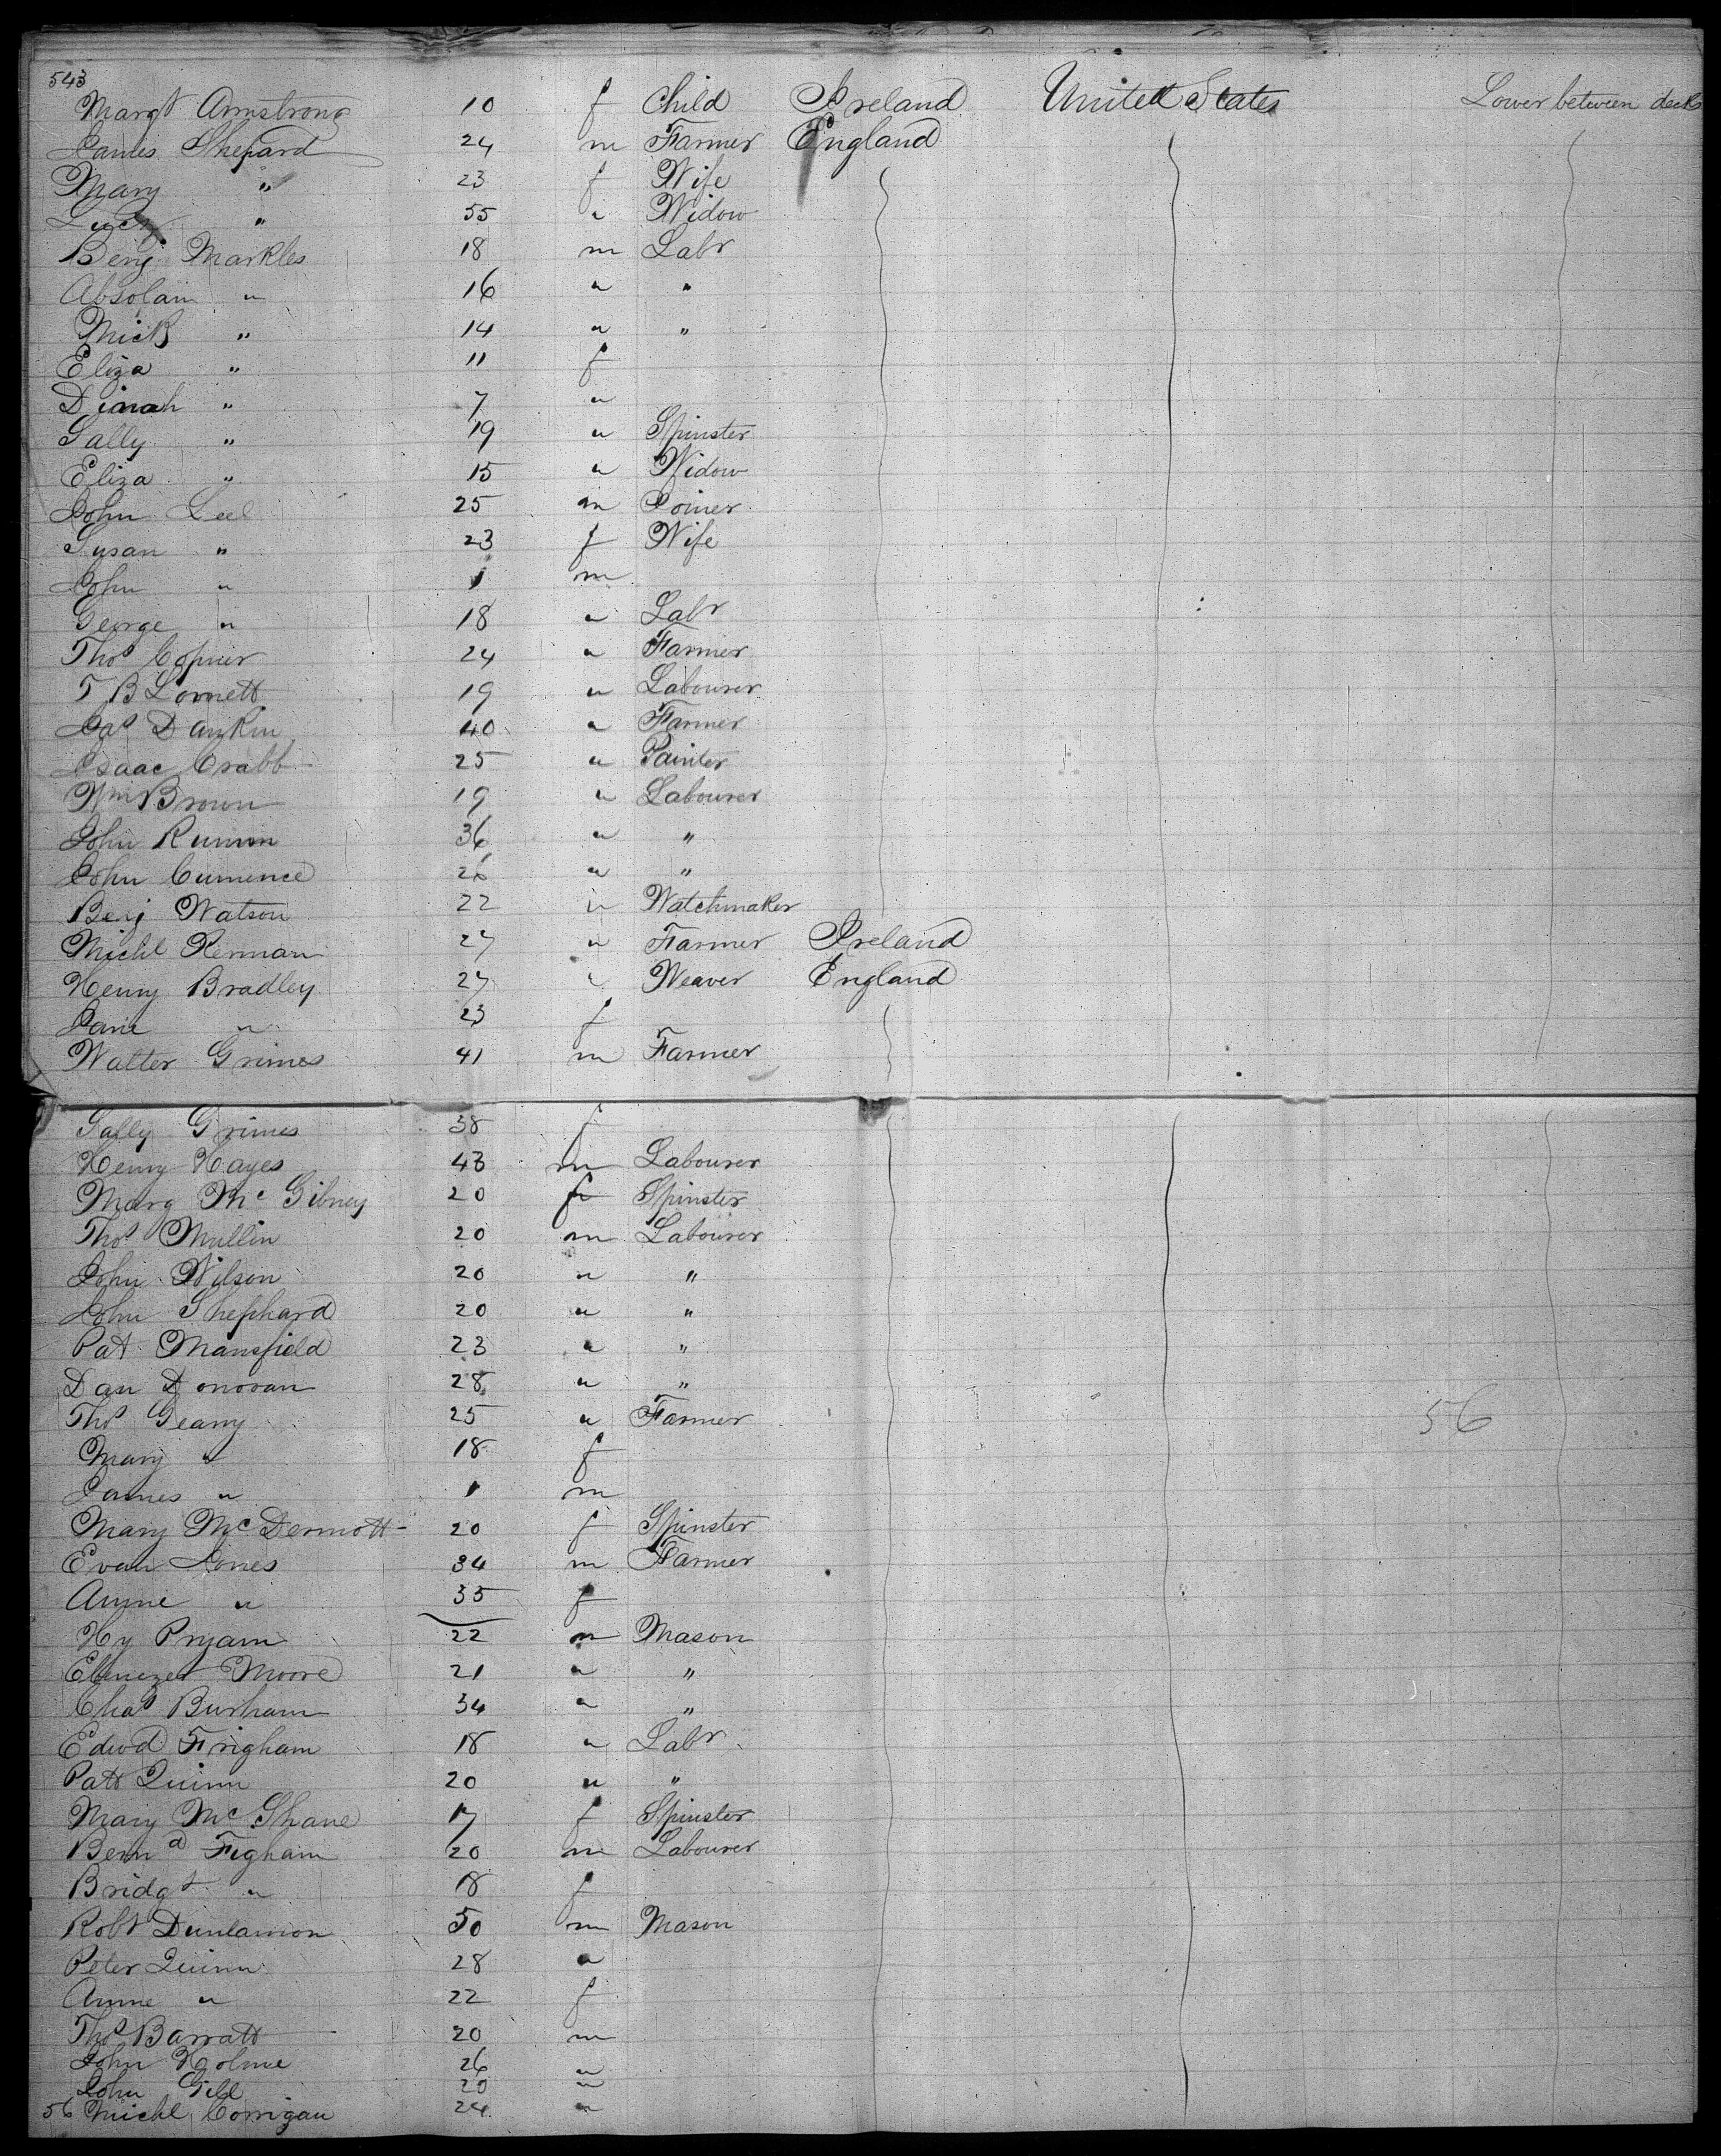 543
Margt Armstrong 10 f Child Ireland United States Lower between deck
James Shepard 24 m Farmer England
Mary " 23 f Wife
Lucy " 55 " Widow
Benj Markles 18 m Labr
Absolam " 16 " "
Mick " 14 " "
Eliza " 11 f
Dinah " 7 "
Sally " 19 " Spinster
Eliza " 15 " Widow
John Leel 25 m Joiner
Susan " 23 f Wife
John " 1 m
George " 18 " Labr
Thos 24 " Farmer
T B Lornett 19 " Labourer
Jas Dankin 40 " Farmer
Isaac Crabb 25 " Painter
Wm Brown 19 " Labourer
John Rumm 36 " "
John Cumence 26 " "
Benj Watson 22 " Watchmaker
Michl 27 " Farmer Ireland
Henry Bradley 27 " Weaver England
Jane " 23 f
Walter Grimes 41 m Farmer
Sally Grimes 38 f
Henry Hayes 43 m Labourer
Marg Mc Gibney 20 f Spinster
Thos Mullin 20 m Labourer
John Wilson 20 " "
John Shephard 20 " "
Pat Mansfield 23 " "
Dan Donovan 28 " "
Thos Geany 25 " Farmer 56
Mary " 18 f
James " 1 m
Mary McDermott 20 f Spinster
Evan Jones 34 m Farmer
Anne " 35 f
Hy Pryam 22 m Mason
Ebenezer Moore 21 " "
Chas Burham 34 " "
Edwd Frigham 18 " Labr
Patt Quinn 20 " "
Mary McShane 17 f Spinster
Bernd Figham 20 m Labourer
Bridgt " 18 f
Robt Dunlamon 50 m Mason
Peter Quinn 28 "
Anne " 22 f
Thos Barratt 20 m
John Holme 26 "
John Gill 20 "
56 Michl Corrigan 24 "